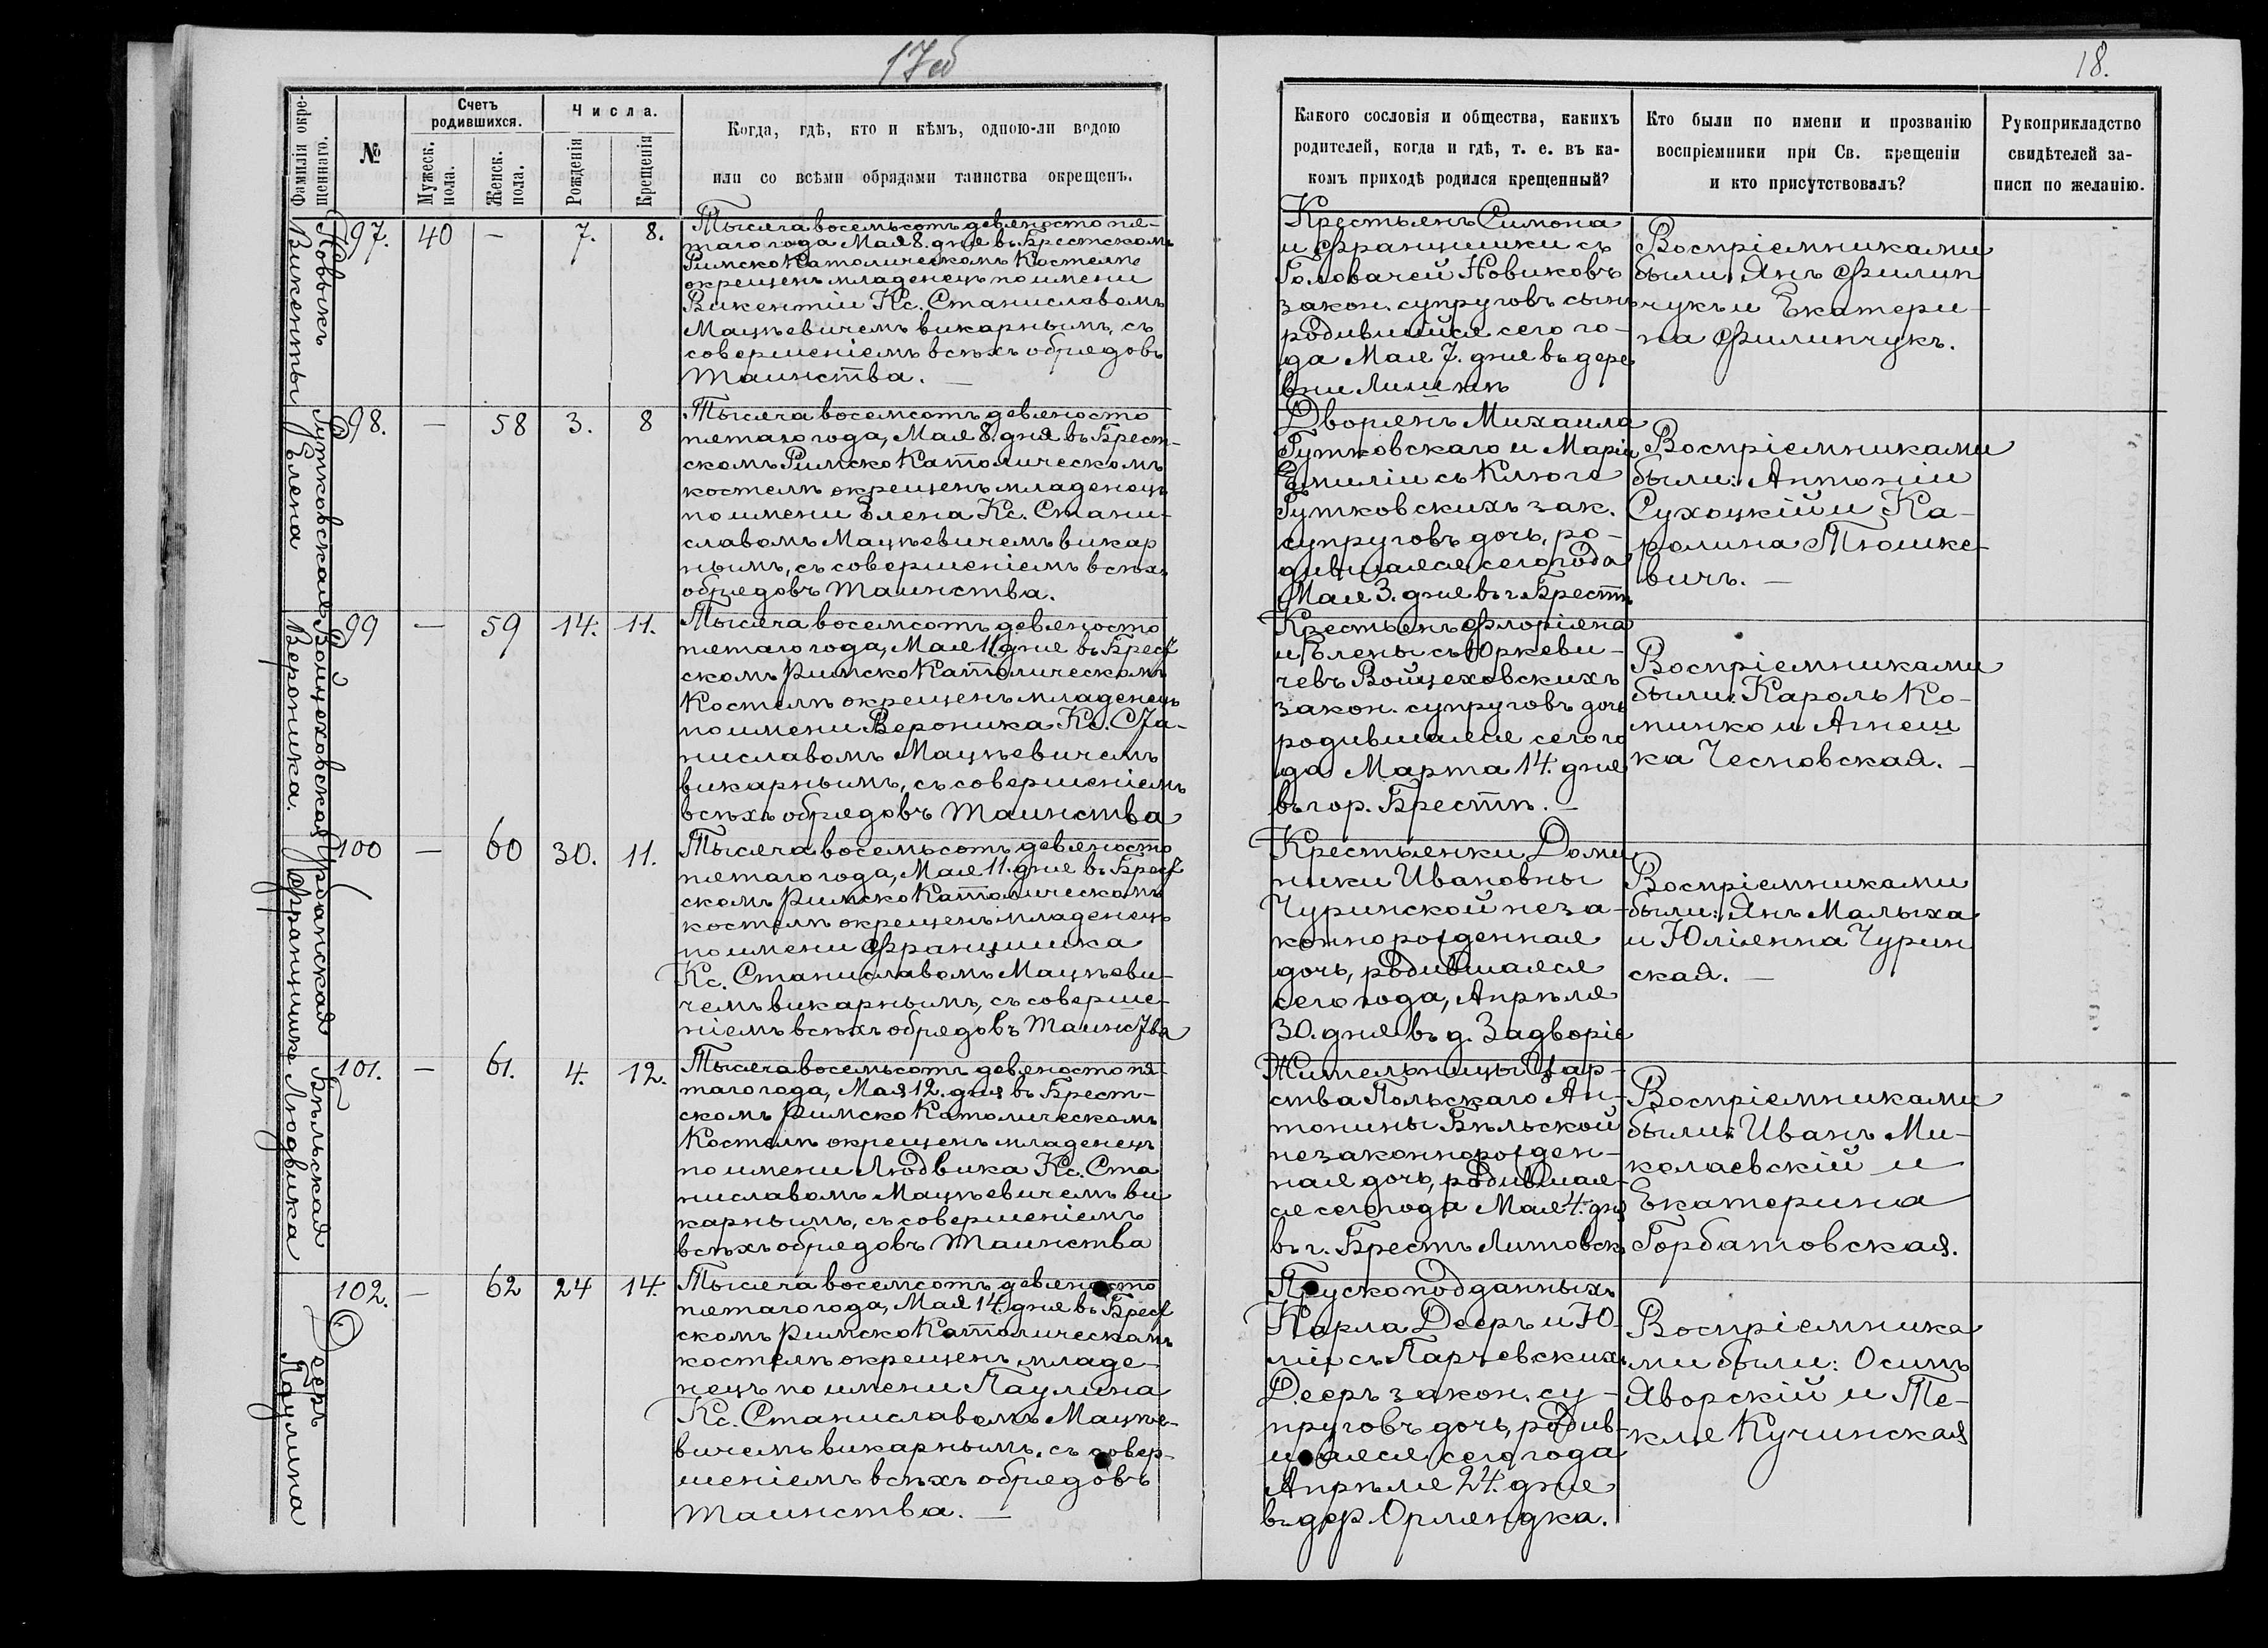 17об
18.
Фамилія окре-
щеннаго.
№
Счетъ
родившихся.
Мужеск.
пола.
Женск.
пола.
Числа.
Рожденія
Крещенія
Когда, гдѣ, кто и кѣмъ, одною-ли водою
или со всѣми обрядами таинства окрещенъ.
Какого сословія и общества, какихъ
родителей, когда и гдѣ, т. е. въ ка-
комъ приходѣ родился крещенный?
Кто были по имени и прозванію
воспріемники при Св. крещеніи
и кто присутствовалъ?
Рукоприкладство
свидѣтелей за-
писи по желанію.
Новикъ
Викенты
97. 40 — 7. 8.
Тысяча восемьсотъ девяносто пя-
таго года Мая 8. дня въ Брестскомъ
Римско Католическомъ Костелѣ
окрещенъ младенецъ по имени
Викентіи Кс. Станиславомъ
Мацѣевичемъ викарнымъ, съ
совершеніемъ всѣхъ обрядовъ
Таинства. —
Крестьянъ Симона
и Францишки съ
Головачей Новиковъ
закон. супруговъ сынъ
родившийся сего го-
да Мая 7. дня въ дере
вни
Воспріемниками
были: Янъ Филип
чукъ и Екатери-
на Филипчукъ.
Гутковская
Елена
98. — 58 3. 8
Тысяча восемсотъ девяносто
пятаго года, Мая 8. дня въ Брест-
скомъ Римско Католическомъ
костелѣ окрещенъ младенецъ
по имени Елена Кс. Стани-
славомъ Мацѣевичемъ викар
нымъ, съ совершеніемъ всѣхъ
обрядовъ Таинства.
Дворянъ Михаила
Гутковскаго и Маріи
Емиліи съ Клюге
Гутковскихъ зак.
супруговъ дочь, ро-
дившаяся сего года
Мая 3. дня въ г. Брестѣ
Воспріемниками
были: Антоніи
Сухоцкій и Ка-
ролина Тюшке-
вичъ. —
Войцеховская
Вероника.
99 — 59 14. 11.
Тысяча восемсотъ девяносто
пятаго года, Мая 11. дня въ Брест
скомъ Римско Католическомъ
Костелѣ окрещенъ младенецъ
по имени Вероника Кс. Ста-
ниславомъ Мацѣевичемъ
викарнымъ, съ совершеніемъ
всѣхъ обрядовъ Таинства
Крестьянъ Флоріяна
и Елены съ Юркеви-
чевъ Войцеховскихъ
закон. супруговъ дочь
родившаяся сего го
да Марта 14. дня
въ гор. Брестѣ. —
Воспріемниками
были: Кароль Ко-
минко и Агнеш
ка Чесновская. —
Францишка
100 — 60 30. 11.
Тысяча восемьсотъ девяносто
пятаго года, Мая 11. дня въ Брест
скомъ Римско Католическомъ
костелѣ окрещенъ младенецъ
по имени Францишка
Кс. Станиславомъ Мацѣеви-
чемъ викарнымъ, съ соверше-
ніемъ всѣхъ обрядовъ Таинства
Крестьянки Доми
ники Ивановны
Чуринской неза-
коннорожденная
дочь, родившаяся
сего года, Апрѣля
30. дня въ д. Задворіе
Воспріемниками
были: Янъ Малыха
и Юліянна Чурин
ская. —
Бѣльская
Людвика
101. — 61. 4. 12.
Тысяча восемьсотъ девяносто пя-
таго года, Мая 12. дня въ Брест-
скомъ Римско Католическомъ
Костелѣ окрещенъ младенецъ
по имени Людвика Кс. Ста
ниславомъ Мацѣевичемъ ви
карнымъ, съ совершеніемъ
всѣхъ обрядовъ Таинства
Жительницы Цар-
ства Польскаго Ан-
тонины Бѣльской
незаконнорожден-
ная дочь, родившая-
ся сего года Мая 4. дня
въ г. Брестъ Литовск
Воспріемниками
были: Иванъ Ми-
колаевскій и
Екатерина
Горбатовская.
Дееръ
Паулина
102. — 62 24 14.
Тысяча восемсотъ девяносто
пятаго года, Мая 14. дня въ Брест
скомъ Римско Католическомъ
костелѣ окрещенъ младе-
нецъ по имени Паулина
Кс. Станиславомъ Мацѣе-
вичемъ викарнымъ, съ совер-
шеніемъ всѣхъ обрядовъ
Таинства. —
Прускоподданныхъ
Карла Дееръ и Ю-
ліи съ Парчевскихъ
Дееръ закон. су-
пруговъ дочь, родив-
шаяся сего года
Апрѣля 24. дня
въ дер. Орляндка.
Воспріемника
ми были: Осипъ
Яворскій и Те-
кля Кучинская